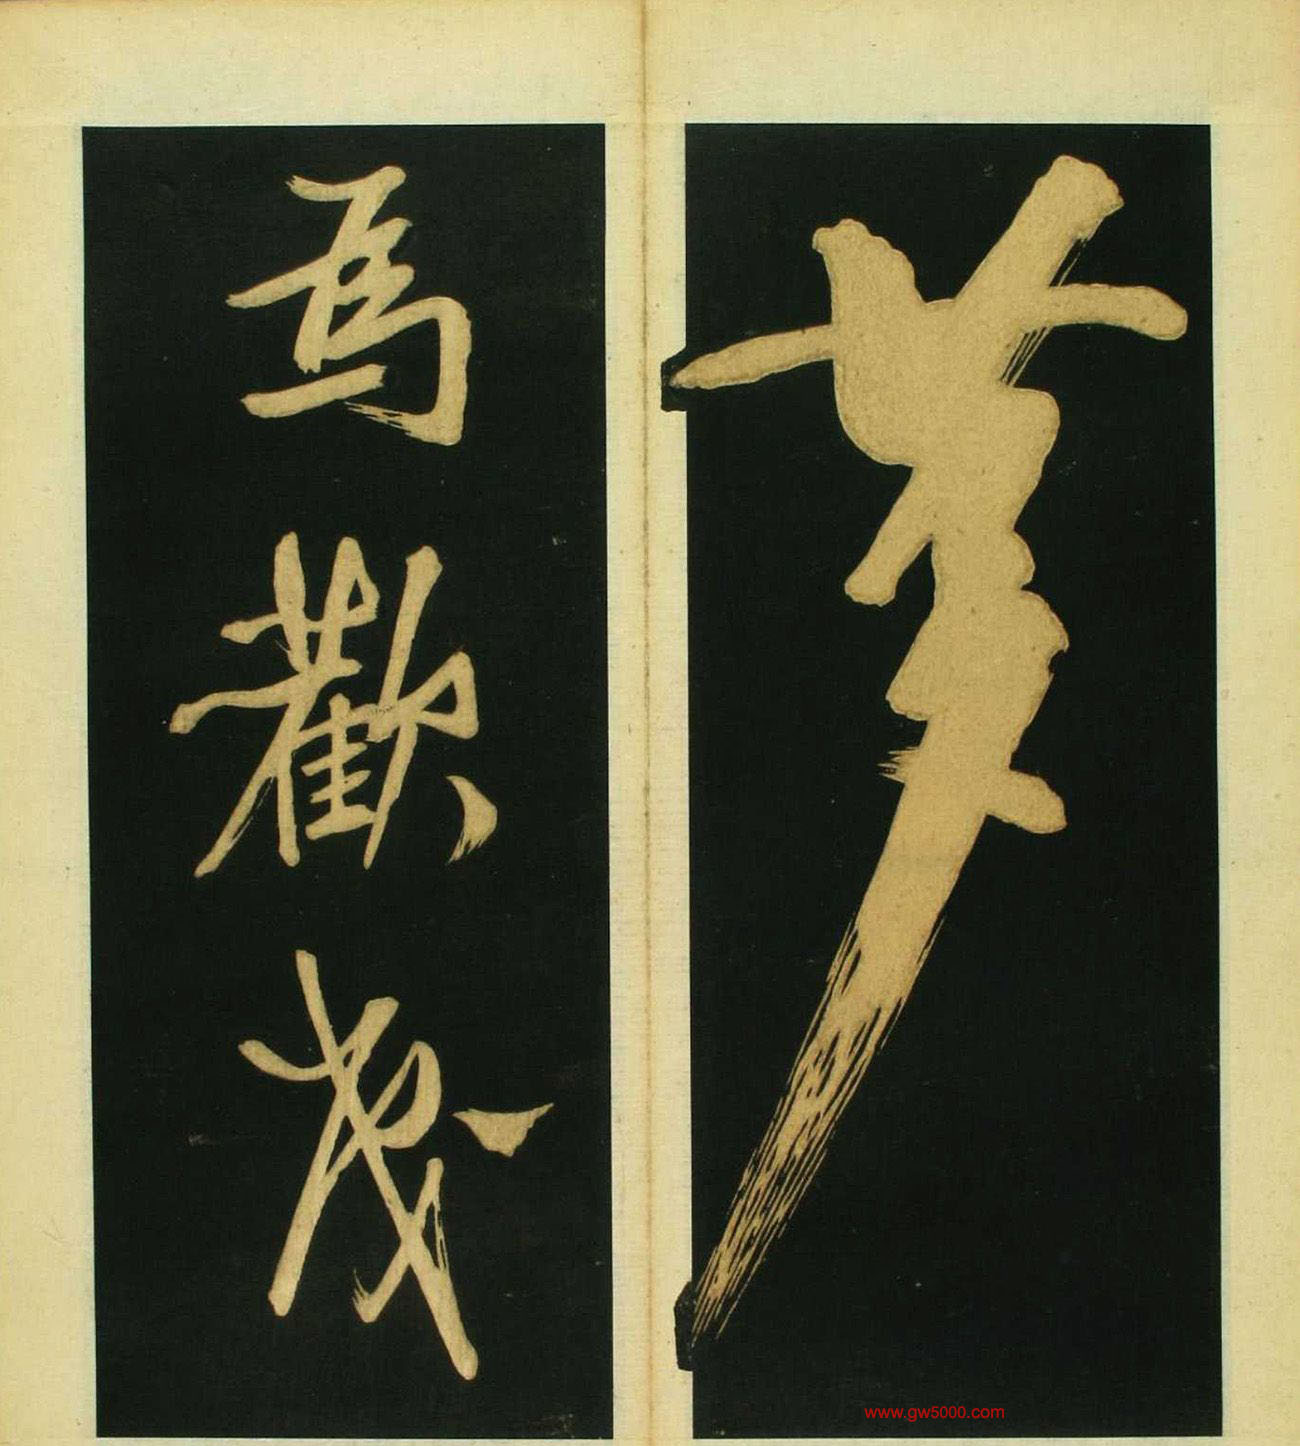 夢
為歡幾
www.gw5000.com